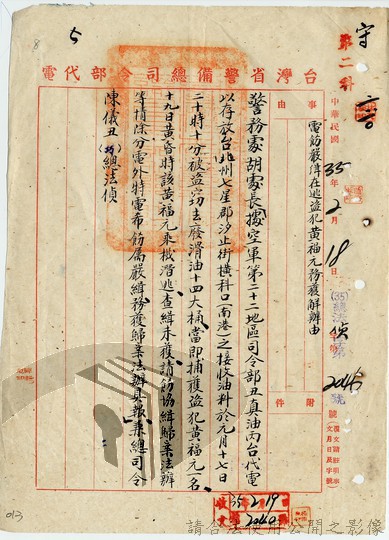 守
第二科
5
8
台灣省警備總司令部代電
事由
電飭嚴緝在逃盜犯黃福元務獲解辦由
附件
中華民國35年2月18日
(35)總法偵字第2046號
警務處胡處長據空軍第二十二地區司令部丑真油丙台代電
以存放台北州七星郡汐止街橫科口(南港)之接收油料於元月十七日
二十時十分被盜竊去廢滑油十四大桶當即捕獲盜犯黃福元一名
十九日黃昏時該黃福元乘機潛逃查緝未獲請飭協緝歸案法辦
等情除分電外特電希飭屬嚴緝務獲歸案法辦具報為要總司令
陳儀丑(巧)總法偵
收文
35 2 19
2040
013
請合法使用公開之影像